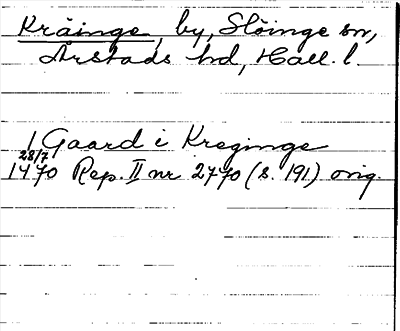 Kräinge, by, Slöinge sn,
Årstads hd, Hall. l.
1 Gaard i Kreginge
28/7
1470 Rep. II nr 2770 (s. 191) orig.